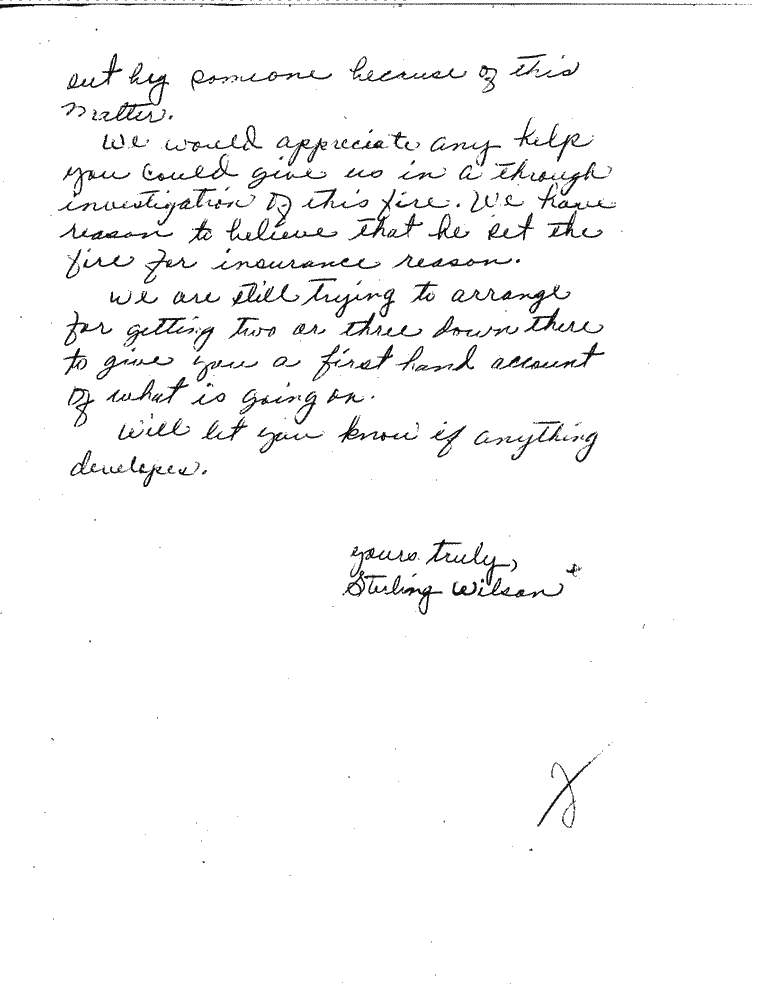 out by someone because of this
matter.
We would appreciate any help
you could give us in a through
investigation of this fire. We have
reason to believe that he set the
fire for insurance reason.
We are still trying to arrange
for getting two or three down there
to give you a first hand account
of what is going on.
Will let you know if anything
developes.
yours truly,
Sterling Wilson